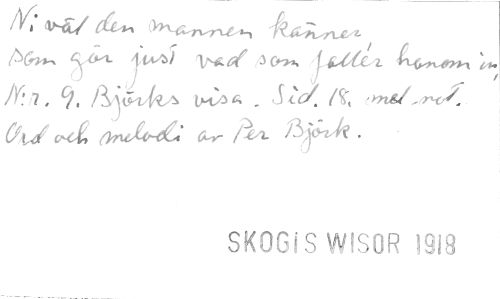 Ni väl den mannen känner
som gör just vad som faller honom in,
N:r. 9. Björks visa. Sid. 18. med not.
Ord och melodi av Per Björk.
SKOGIS WISOR 1918